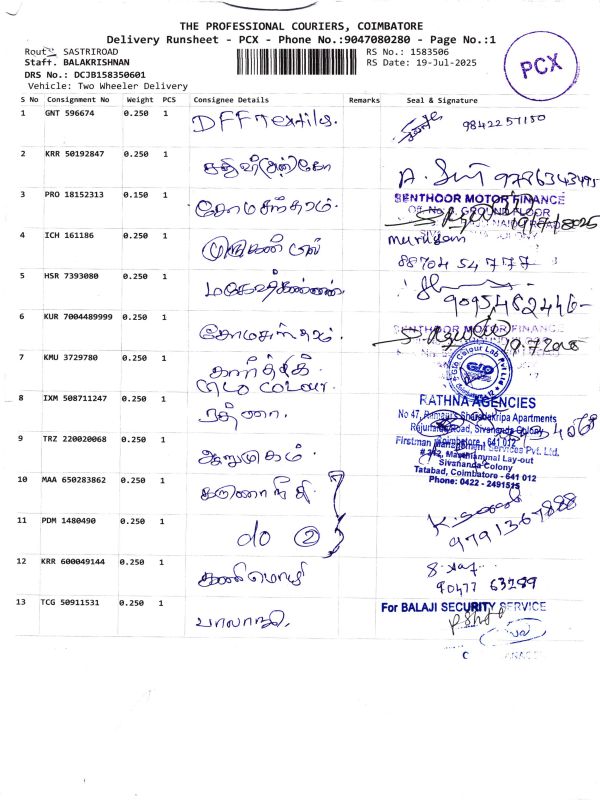 THE PROFESSIONAL COURIERS, COIMBATORE
Delivery Runsheet - PCX - Phone No.:9047080280 - Page No.:1
Route SASTRIROAD RS No.: 1583506
Staff. BALAKRISHNAN RS Date: 19-Jul-2025
DRS No.: DCJB158350601
Vehicle: Two Wheeler Delivery
PCX
S No Consignment No Weight PCS Consignee Details Remarks Seal & Signature
1 GNT 596674 0.250 1 DFF Textiles. 9842257150
2 KRR 50192847 0.250 1 9786343495
3 PRO 18152313 0.150 1 சோமசுந்தரம்.
SENTHOOR MOTOR FINANCE
GROUND FLOOR
4 ICH 161186 0.250 1 முருகன் murugan
88704 54777
5 HSR 7393080 0.250 1 மகேஷ்கண்ணன் 9095462446
6 KUR 7004489999 0.250 1 சோமசுந்தரம்
SENTHOOR MOTOR FINANCE
7 KMU 3729780 0.250 1 கார்த்திக்
Glo Colour.
Glo Colour Lab Pvt Ltd
GLO
8 IXM 508711247 0.250 1 ரத்னா.
RATHNA AGENCIES
No 47, Ramajis Sharadakripa Apartments
Rajunaidu Road, Sivananda Colony
Coimbatore - 641 012
9 TRZ 220020068 0.250 1 ஆறுமுகம்
Firstman Management Services Pvt. Ltd.
# 242, Manthiammal Lay-out
Sivananda Colony
Tatabad, Coimbatore - 641 012
Phone: 0422 - 2491515
10 MAA 650283862 0.250 1
11 PDM 1480490 0.250 1 do 2 9791367888
12 KRR 600049144 0.250 1 கனிமொழி
90477 63289
13 TCG 50911531 0.250 1 பாலாஜி.
For BALAJI SECURITY SERVICE